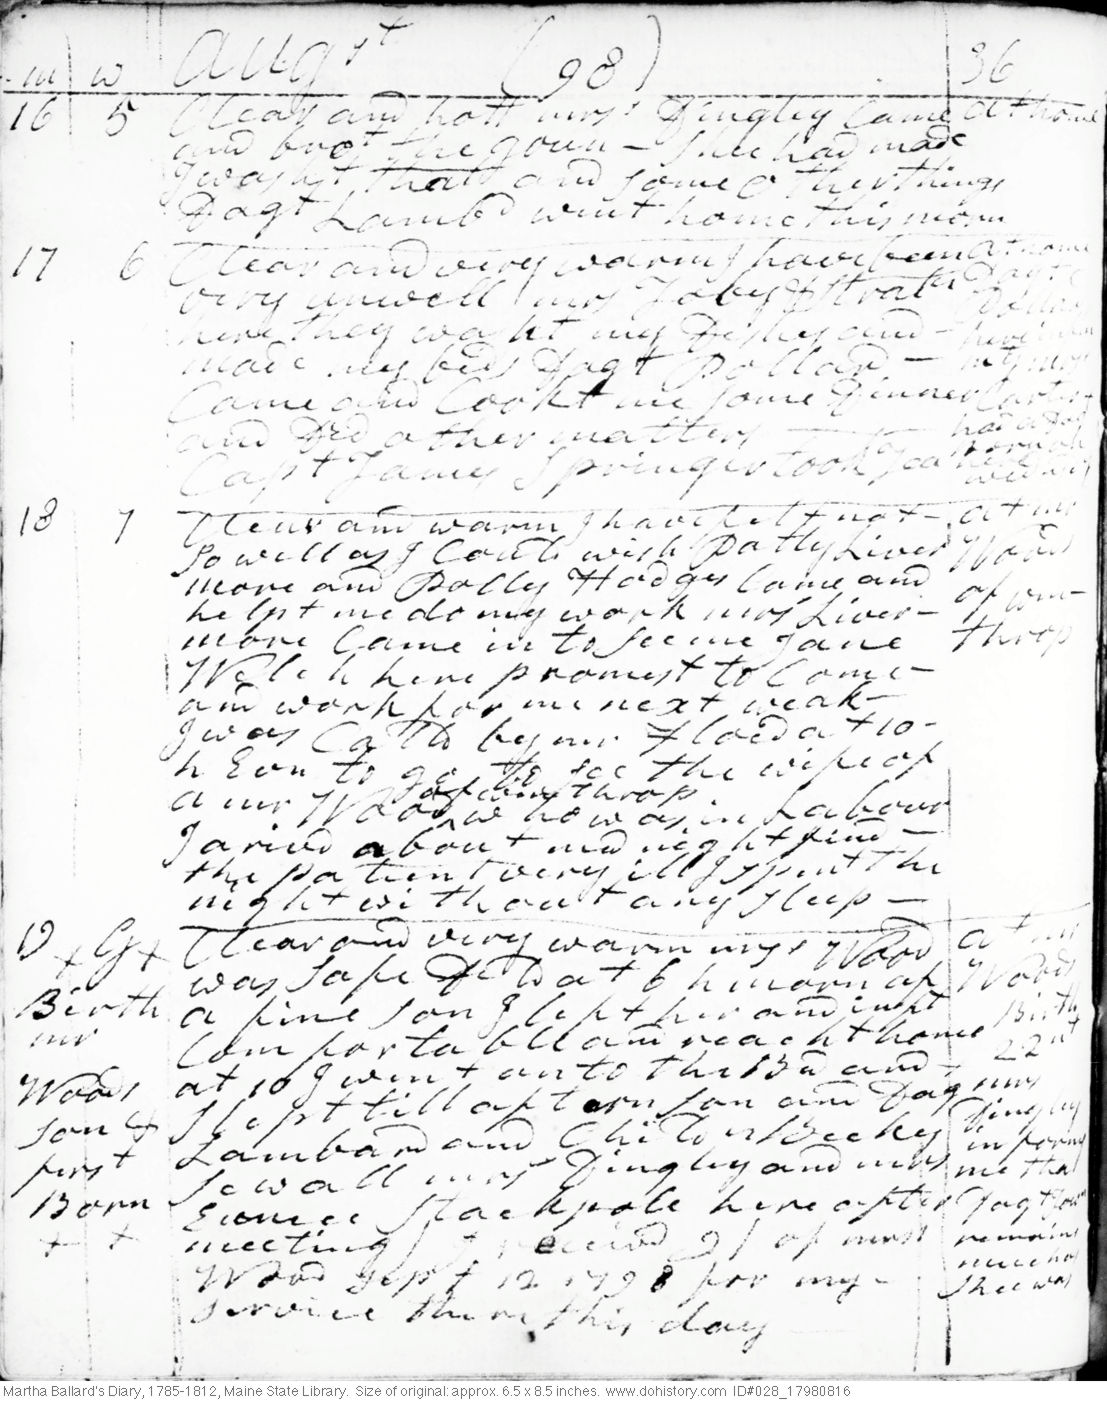 m w Augst (98) 36
16 5 Clear and hott mrs Dingley Came at home
and brot the goun - Shee had made
I washt that and some other things
Dagt Lambd went home this morn
17 6 Clear and very warm I have been at home
very unwell mrs Toby &
here they washt my Dishes and -
made my beds Dagt Pollard -
Came and Cookt me some Dinner
and Did other matters
Capt James Springer took Tea here
18 7 Clear and warm I have felt not - at mr
so well as I Could wish Patty Liver Woods
more and Polly Hodges Came and of win-
helpt me do my work mrs Liver- throp
more Came in to see me Jane
Welch here promest to Come -
and work for me next weak -
I was Calld by mr Floid at 10 -
h Evn to go to see the wife of
a mr Wood of winthrop who was in Labour
I arivd about midnight find -
the patient very ill I spent the
night without any sleep -
19 + G + Clear and very warm mrs Wood at mr
was safe Dd at 6 h morn of Woods
Birth a fine son I left her and inft Birth
mr Comfortabll and reacht home 22nt
at 10 I went onto the Bd and - mrs
Woods slept till aftern son and Dag Dingley
son & Lambard and Childn Becky informs
first Sewall mrs Dingley and mrs me that
Born Eunice Stackpole here after Dagt Jon
+ + meeting I receivd 9/ of mr remains
Wood Sept 12 1798 for my - much as
service there this day shee was